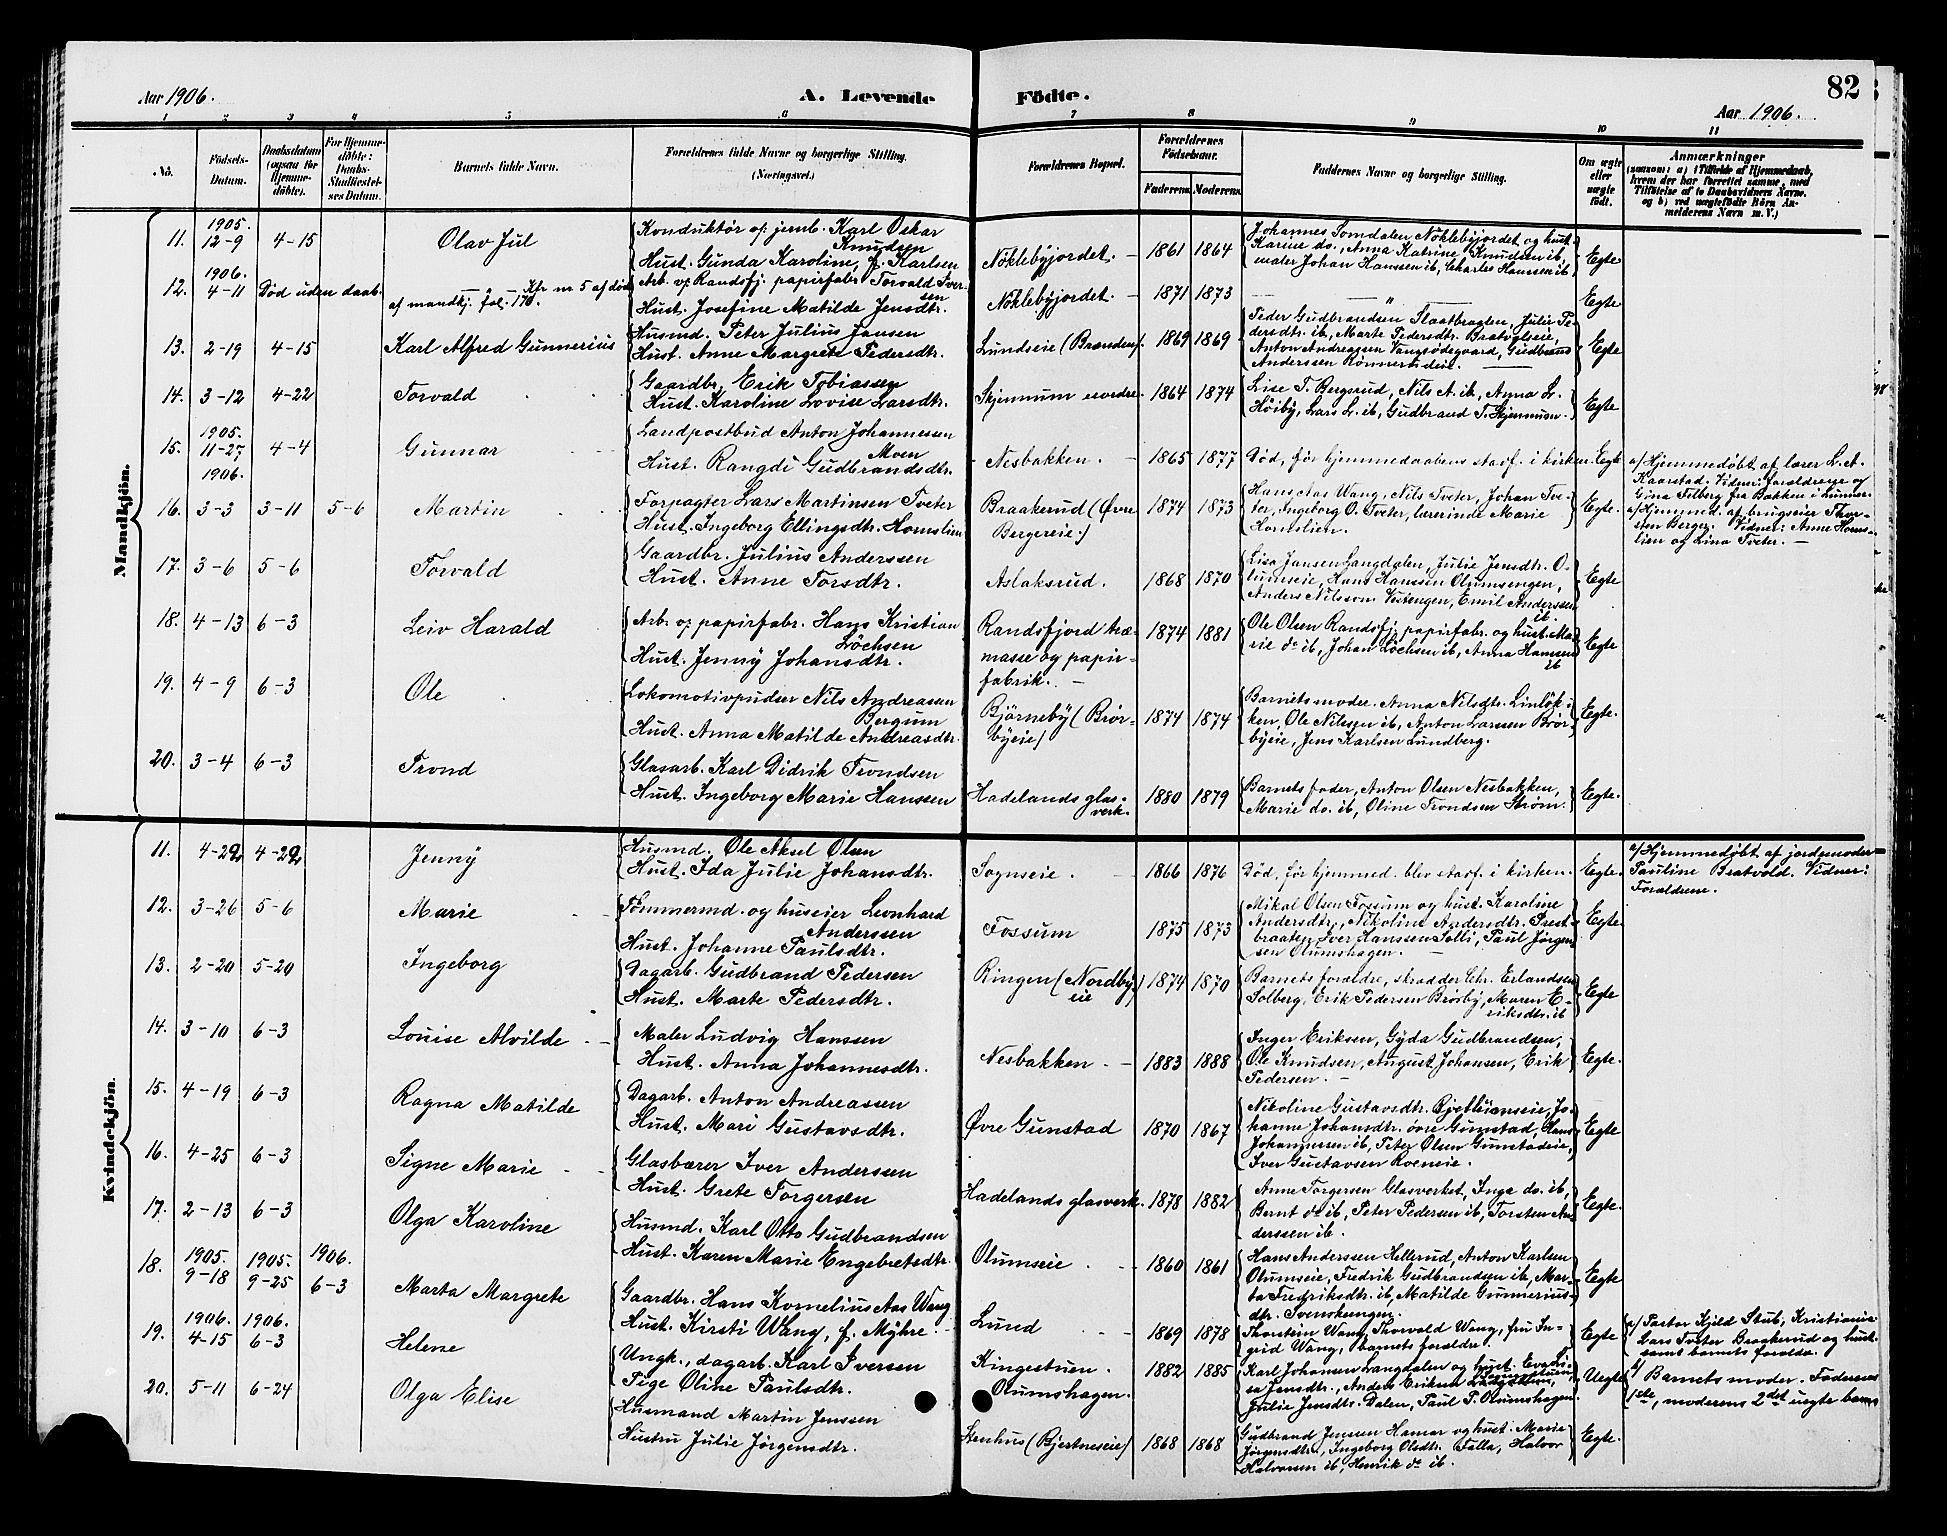 82
Aar 1906. A. Levende Födte. Aar 1906.
1 2 3 4 5 6 7 8 9 10 11
No. Födsels-Datum. Daabsdatum (ogsaa for Hjemmedöbte). For Hjemmedöbte: Daabs-Stadfæstelses Datum. Barnets fulde Navn. Forældrenes fulde Navne og borgerlige Stilling. (Næringsvei.) Forældrenes Bopæl. Forældrenes Födselsaar. Faderens. Moderens. Faddernes Navne og borgerlige Stilling. Om ægte eller uægte födt. Anmærkninger (saasom: a) i Tilfælde af Hjemmedaab, hvem der har forrettet samme, med Tilföielse af to Daabsvidners Navne, og b) ved uægtefödte Börn Anmelderens Navn m. V.)
Mandkjön.
11. 1905. 12-9 4-15 Olav Jul
Konduktör v. jernb. Karl Oskar Knudsen
Hust. Gunda Karoline, f. Karlsen
Nöklebyjordet. 1861 1864
Johannes Somdalen Nöklebyjordet og hust.
Karine do., Anna Katrine Knudsen ib,
maler Johan Hanssen ib, Charles Hanssen ib
Egte
12. 1906. 4-11 Död uden daab. Kfr nr 5 af død
af mandkj. fol. 170.
Arb. v. Randsfj. papirfabr Torvald Iversen
Hust. Josefine Matilde Jensdtr.
Nöklebyjordet. 1871 1873 — " — Egte
13. 2-19 4-15 Karl Alfred Gunnerius
Husmd. Peter Julius Jansen
Hust. Anne Margrete Pedersdtr.
Lundseie (Brænden). 1869 1869
Peder Gudbrandsen Flaatbragten, Julie Pe-
dersdtr. ib, Marte Pedersdtr. Bratvolseie,
Anton Andreassen Vangsødegaard, Gudbrand
Anderssen Rönnerudeie.
Egte
14. 3-12 4-22 Torvald
Gaardbr. Erik Tobiassen
Hust. Karoline Lovise Larsdtr.
Skjennum nordre 1864 1874
Lise T. Bergerud, Nils A. ib, Anna L.
Höiby, Lars L. ib, Gudbrand T. Skjennum.
Egte
15. 1905. 11-27 4-4 Gunnar
Landpostbud Anton Johannessen Moen
Hust. Rangdi Gudbrandsdtr.
Nesbakken. 1865 1877 Död, før hjemmedaabens stadf. i kirken. Egte
a/ Hjemmedöbt af lærer L. A.
Kaarstad. Vidner: foraldrene og
Gina Solberg fra Bakken i Lunner.
16. 1906. 3-3 3-11 5-6 Martin
Forpagter Lars Martinsen Tveter
Hust. Ingeborg Ellingsdtr. Hornslien
Braakerud (Övre Bergereie:) 1874 1873
Hans Aas Wang, Nils Tveter, Johan Tve-
ter, Ingeborg O. Tveter, lærerinde Marie
Hornslien.
Egte.
a/ Hjemmed. af brugseier Thor-
sten Berger. Vidner: Anne Horns-
lien og Lina Tveter.
17. 3-6 5-6 Torvald
Gaardbr. Julius Anderssen
Hust. Anne Torsdtr.
Aslaksrud. 1868 1870
Lisa Jansen Langdalen, Julie Jensdtr. O-
lumseie, Hans Hanssen Olumsengen,
Anders Nilsson Vestengen, Emil Anderssen ib.
Egte
18. 4-13 6-3 Leiv Harald
Arb. v. papirfabr. Hans Kristian Löchsen
Hust. Jenny Johansdtr.
Randsfjord træmasse og papirfabrik. 1874 1881
Ole Olsen Randsfj. papirfabr. og hust. Ma-
rie do ib, Johan Löchsen ib, Anna Hanssen ib
Egte
19. 4-9 6-3 Ole
Lokomotivpudser Nils Andreasen Bergum
Hust. Anna Matilde Andreasdtr.
Björneby (Brörbyeie) 1874 1874
Barnets moder. Anna Nilsdtr. Linlök i-
ken, Ole Nilssen ib, Anton Larssen Brör-
byeie, Jens Karlsen Lundberg.
Egte.
20. 3-4 6-3 Trond
Glasarb. Karl Didrik Trondsen
Hust. Ingeborg Marie Hanssen
Hadelands glasverk. 1880 1879
Barnets fader, Anton Olsen Nesbakken,
Marie do. ib, Oline Trondsen Ström.
Egte.
Kvindekjön.
11. 4-22 4-22 Jenny
Husmd. Ole Aksel Olsen
Hust. Ida Julie Johansdtr.
Sognseie. 1866 1876 Död, før hjemmed. blev stadf. i kirken. Egte.
a/ Hjemmedöbt af jordemoder
Pauline Bratvold. Vidner:
Foraldrene.
12. 3-26 5-6 Marie
Tömmermd. og huseier Leonhard Anderssen
Hust. Johanne Paulsdtr.
Fossum 1875 1873
Mikal Olsen Fossum og hust. Karoline
Andersdtr., Nikoline Andersdtr. Prest-
braaten, Iver Hanssen Solli, Paul Jörgen-
sen Olumshagen.
Egte.
13. 2-20 5-20 Ingeborg
Dagarb. Gudbrand Pedersen
Hust. Marte Pedersdtr.
Ringen (Nordbyeie) 1874 1870
Barnets foraldre, skrædder Chr. Erlandsen
Solberg, Erik Pedersen Brörby, Maren E-
riksdtr. ib
Egte
14. 3-10 6-3 Louise Alvilde
Maler Ludvig Hanssen
Hust. Anna Johannesdtr.
Nesbakken. 1883 1888
Inger Eriksen, Gyda Gudbrandsen,
Ole Knudsen, August Johansen, Erik
Pedersen.
Egte.
15. 4-19 6-3 Ragna Matilde
Dagarb. Anton Andreassen
Hust. Mari Gustavsdtr.
Övre Gunstad 1870 1867
Nikoline Gustavsdtr. , Jo-
hanne Johansdtr. övre Gunstad, Hans
Johannessen ib, Peter Olsen Gunstadeie,
Iver Gustavsen Roeneie.
Egte
16. 4-25 6-3 Signe Marie
Glasbærer Iver Anderssen
Hust. Grete Torgersen
Hadelands glasverk. 1878 1882
Anne Torgersen Glasverket, Inga do. ib,
Bernt do ib, Peter Pedersen ib, Torsten An-
derssen ib.
Egte.
17. 2-13 6-3 Olga Karoline
Husmd. Karl Otto Gudbrandsen
Hust. Karen Marie Engebretsdtr.
Olumseie 1860 1861
Hans Anderssen Hellerud, Anton Karlsen
Olumseie, Fredrik Gudbrandsen ib, Mar-
ta Fredriksdtr. ib, Matilde Gunnerius-
dtr. Svenskengen.
Egte
18. 1905. 9-18 1905. 9-25 1906. 6-3 Marta Margrete
Gaardbr. Hans Kornelius Aas Wang
Hust. Kirsti Wang, f. Myhre.
Lund 1869 1878
Thorstein Wang, Thorvald Wang, fru In-
grid Wang, barnets foraldre.
Egte
a/ Pastor Kjeld Stub, Kristiania
Lars Tveter Braakerud og hust.
samt barnets foraldre.
19. 1906. 4-15 1906. 6-3 Helene
Ungk., dagarb. Karl Iversen
Pige Oline Paulsdtr.
Kingestuen. Olumshagen. 1882 1885
Karl Johansen Langdalen og hust. Eva Li-
sa Jensdtr., Anders Eriksen ,
Julie Jensdtr. Dalen, Paul P. Olumshagen.
Uegte
b/ Barnets moder. Faderens
1ste, moderens 2det uegte barn
20. 5-11 6-24 Olga Elise
Husmand Martin Jenssen
Hustru Julie Jörgensdtr.
Stenhus (Bjertneseie) 1868 1868
Gudbrand Jensen Hamar og hust. Marie
Jörgensdtr., Ingeborg Olsdtr. Falla, Halvor
Halvorsen ib, Henrik do ib.
Egte.